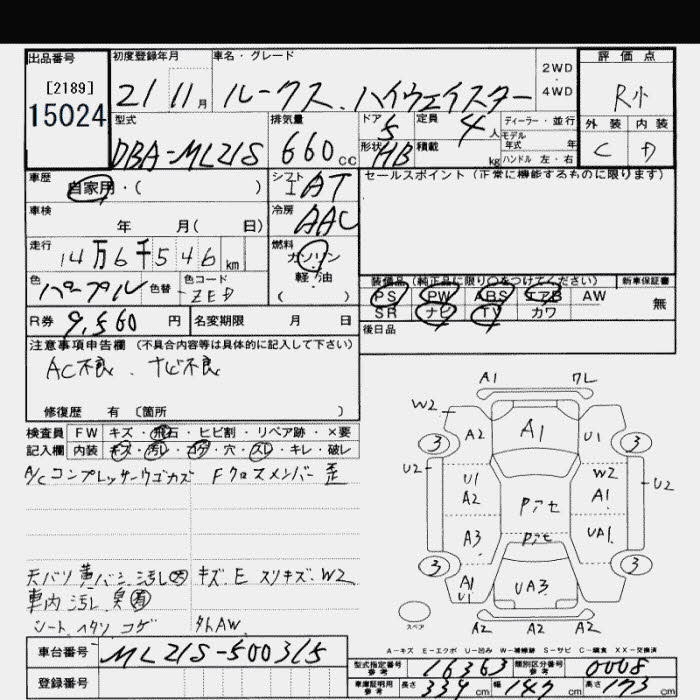 出品番号
[2189]
15024
初度登録年月
21 11月
車名・グレード
ルークス ハイウェイスター
2WD
・
4WD
評価点
R小
外装 内装
C D
型式
DBA-ML21S
排気量
660cc
ドア 5
定員 4人
形状 HB
積載 kg
ディーラー・並行
モデル年式 年
ハンドル 左・右
車歴
自家用・( )
シフト
I AT
セールスポイント (正常に機能するものに限ります)
車検
年 月( 日)
冷房
AAC
走行
14万6千546km
燃料
ガソリン
軽油
( )
色
パープル
色替
色コード
ZED
装備品(純正品に限り○をつけてください)
新車保証書
PS PW ABS エアB AW
無
SR ナビ TV カワ
R券 9,560円
名変期限 月 日
後日品
注意事項申告欄 (不具合内容等は具体的に記入して下さい)
AC不良、ナビ不良
修復歴 有 〔箇所 〕
検査員 FW キズ・飛石・ヒビ割・リペア跡・×要
記入欄 内装 キズ・汚レ・コゲ・穴・スレ・キレ・破レ
A/Cコンプレッサーウゴカズ Fクロスメンバー歪
天バリ 汚レ大 キズ.E スリキズ.W2
車内汚レ 臭有
シート コゲ 外AW
A1 フレ
W2
A2 A1 U1
3 3
U2 U1 W2 U2
A2 A1
A3 UA1
3 3
A1
U1 UA3
スペア A2 A2 A2
A-キズ E-エクボ U-凹み W-補修跡 S-サビ C-腐食 XX-交換済
車台番号
ML21S-500315
登録番号
型式指定番号参考
16363
類別区分番号参考
0008
車庫証明用参考
長さ 339cm
幅 147cm
高さ 173cm